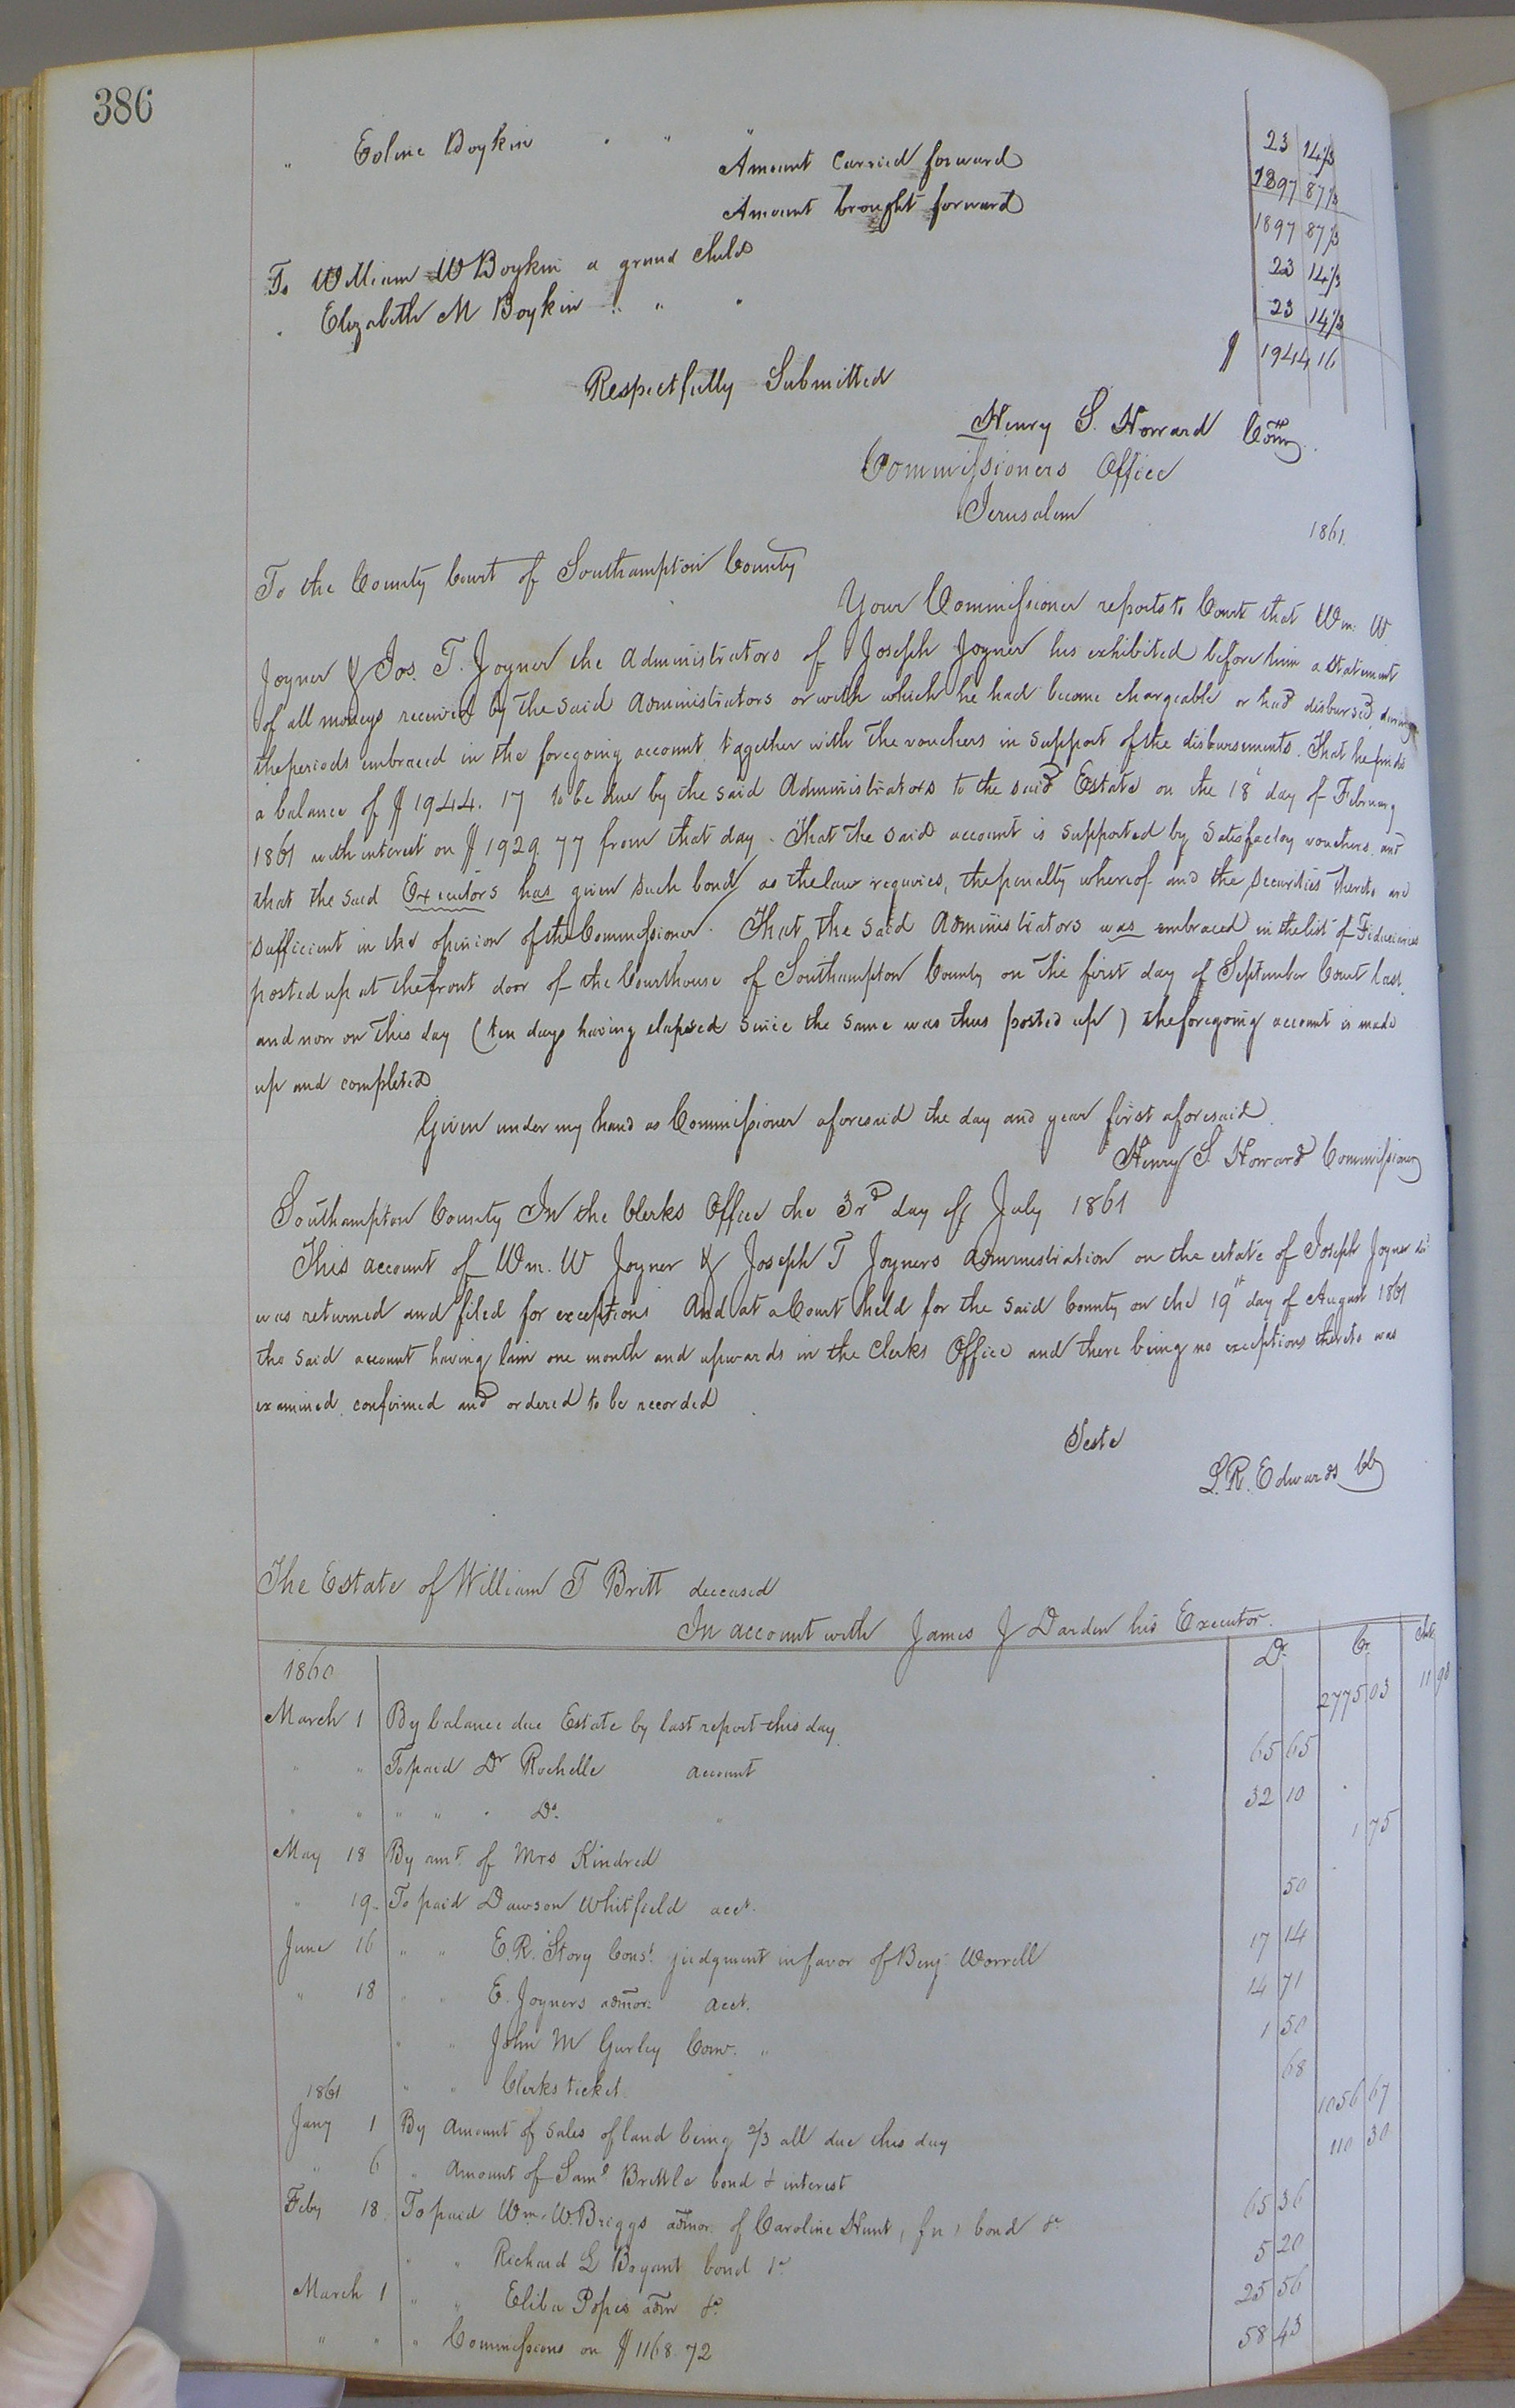 386
" Eoline Boykin " " " 23 14 1/3
Amount Carried forward 1897 87 1/3
Amount brought forward 1897 87 1/3
To William W Boykin a grand child 23 14 1/3
" Elizabeth M Boykin " " " 23 14 1/3
$ 1944 16
Respectfully Submitted
Henry S. Howard Comr
Commissioners Office
Jerusalem
1861.
To the County Court of Southampton County
Your Commissioner reports to Court that Wm. W
Joyner & Jos. T. Joyner the Administrators of Joseph Joyner has exhibited before him a statement
of all moneys received by the said Administrators or with which he had become chargeable or had disbursed during
the periods embraced in the foregoing account together with the vouchers in support of the disbursements. That he finds
a balance of $ 1944. 17 to be due by the said Administrators to the said Estate on the 18 day of February
1861 with interest on $ 1929 77 from that day. That the said account is supported by satisfactory vouchers and
that the said Executors has given such bond as the law requires, the penalty whereof and the securities thereto are
sufficient in the opinion of the Commissioner. That the said Administrators was embraced in the list of Fiduciaries
posted up at the front door of the Courthouse of Southampton County on the first day of September Court last.
and now on this day (ten days having elapsed since the same was thus posted up) the foregoing account is made
up and completed
Given under my hand as Commissioner aforesaid the day and year first aforesaid.
Henry S. Howard Commissioner
Southampton County In the Clerks Office the 3rd day of July 1861
This account of Wm. W Joyner & Joseph T Joyners administration on the estate of Joseph Joyner decd
was returned and filed for exceptions And at a Court held for the said County on the 19th day of August 1861
the said account having lain one month and upwards in the Clerks Office and there being no exceptions thereto was
examined confirmed and ordered to be recorded
Teste
L. R. Edwards Clk
The Estate of William T Britt deceased
In account with James J Darden his Executor.
1860 Dr. Cr. Int
March 1 By balance due Estate by last report this day 2775 03 11 90
" " To paid Dr Rochelle account 65 65
" " " " " Do. " 32 10
May 18 By amt. of Mrs Kindred 1 75
" 19 To paid Dawson Whitfield acct. 50
June 16 " " E. R. Story Const. judgment in favor of Benj Worrell 17 14
" 18 " " E. Joyners admor. acct. 14 71
" " John M Gurley Com. " 1 50
1861 " " Clerks ticket 68
Jany 1 By Amount of sales of land being 2/3 all due this day 1056 67
" 6 " Amount of Saml Brittle bond & interest 110 30
Feby 18 To paid Wm. W. Briggs admor. of Caroline Hunt, bond &c 65 36
" " Richard L Bryant bond &c 5 20
March 1 " " Eliba Popes adm &c 25 56
" " " Commissions on $ 1168. 72 58 43